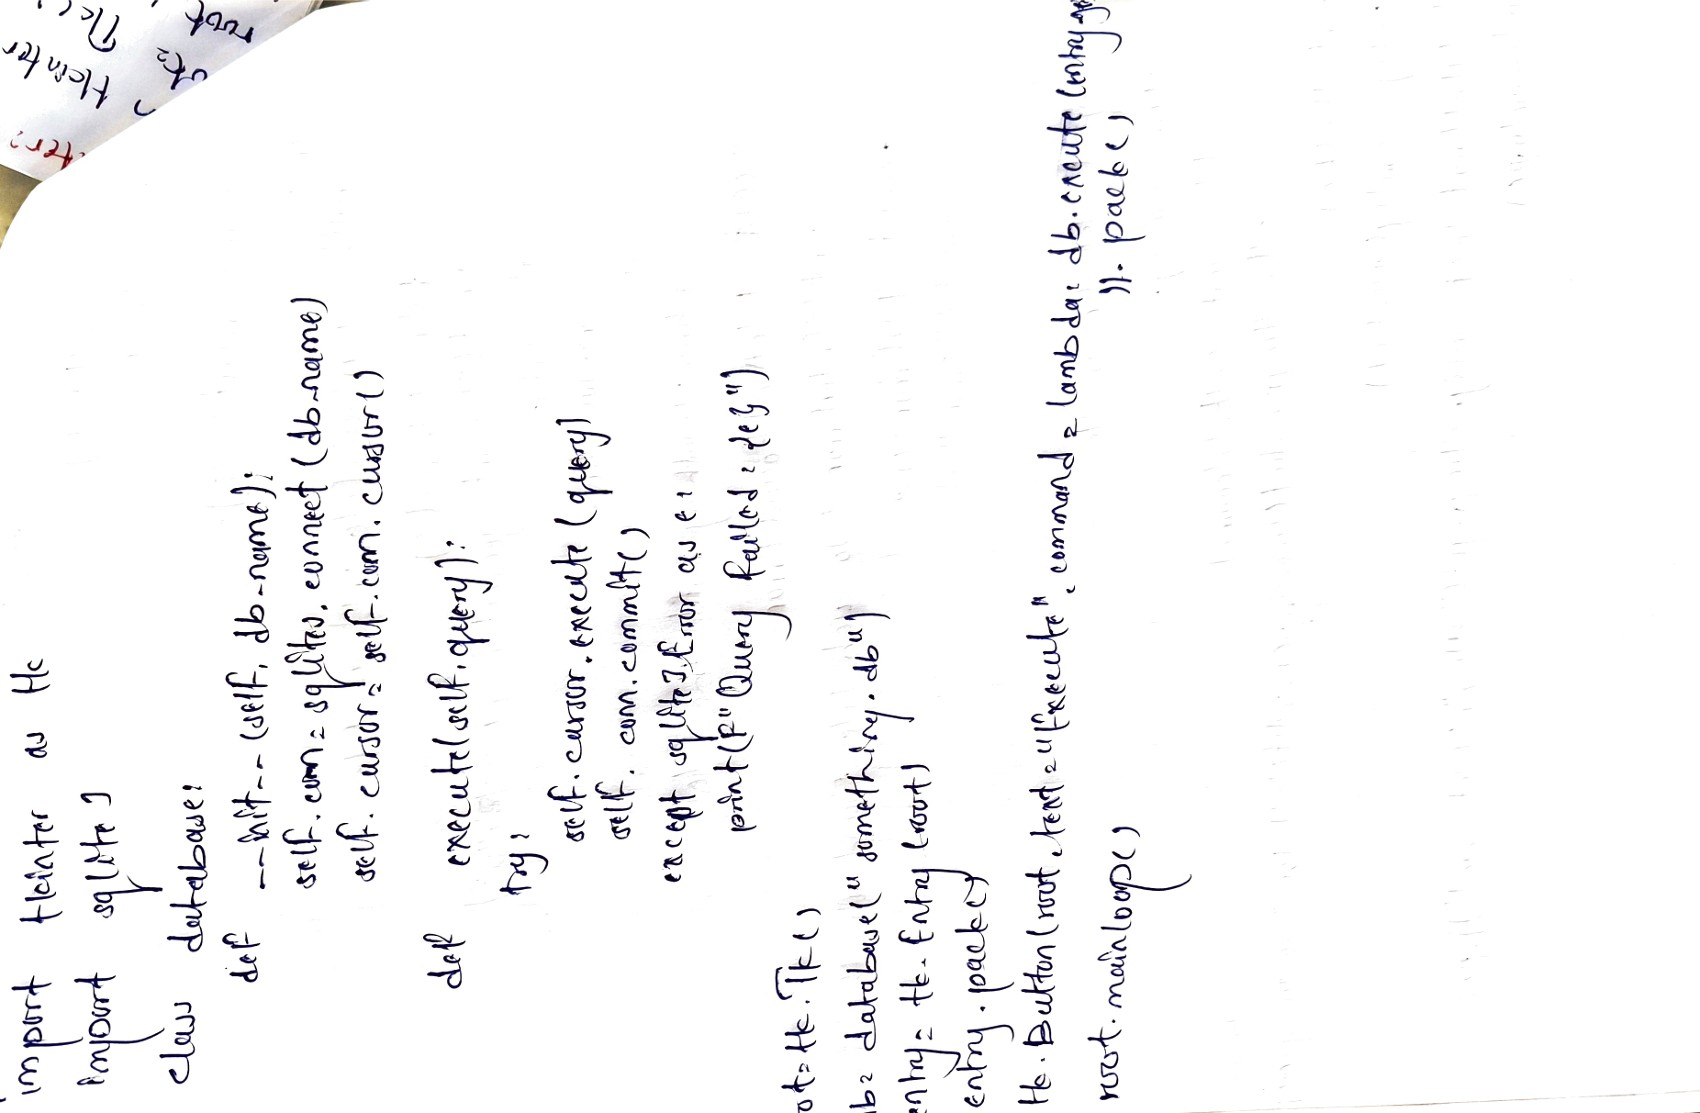 import tkinter as tk
import sqlite3
class database:
def __init__(self, db_name):
self.conn = sqlite3.connect(db_name)
self.cursor = self.conn.cursor()
def execute(self, query):
try:
self.cursor.execute(query)
self.conn.commit()
except sqlite3.Error as e:
print(F"Query failed: {e}")
ot = tk.Tk()
db = database("something.db")
entry = tk.Entry(root)
entry.pack()
tk.Button(root, text="Execute", command = lambda: db.execute(entry.ge
)).pack()
root.mainloop()
ter:
tkinter
root